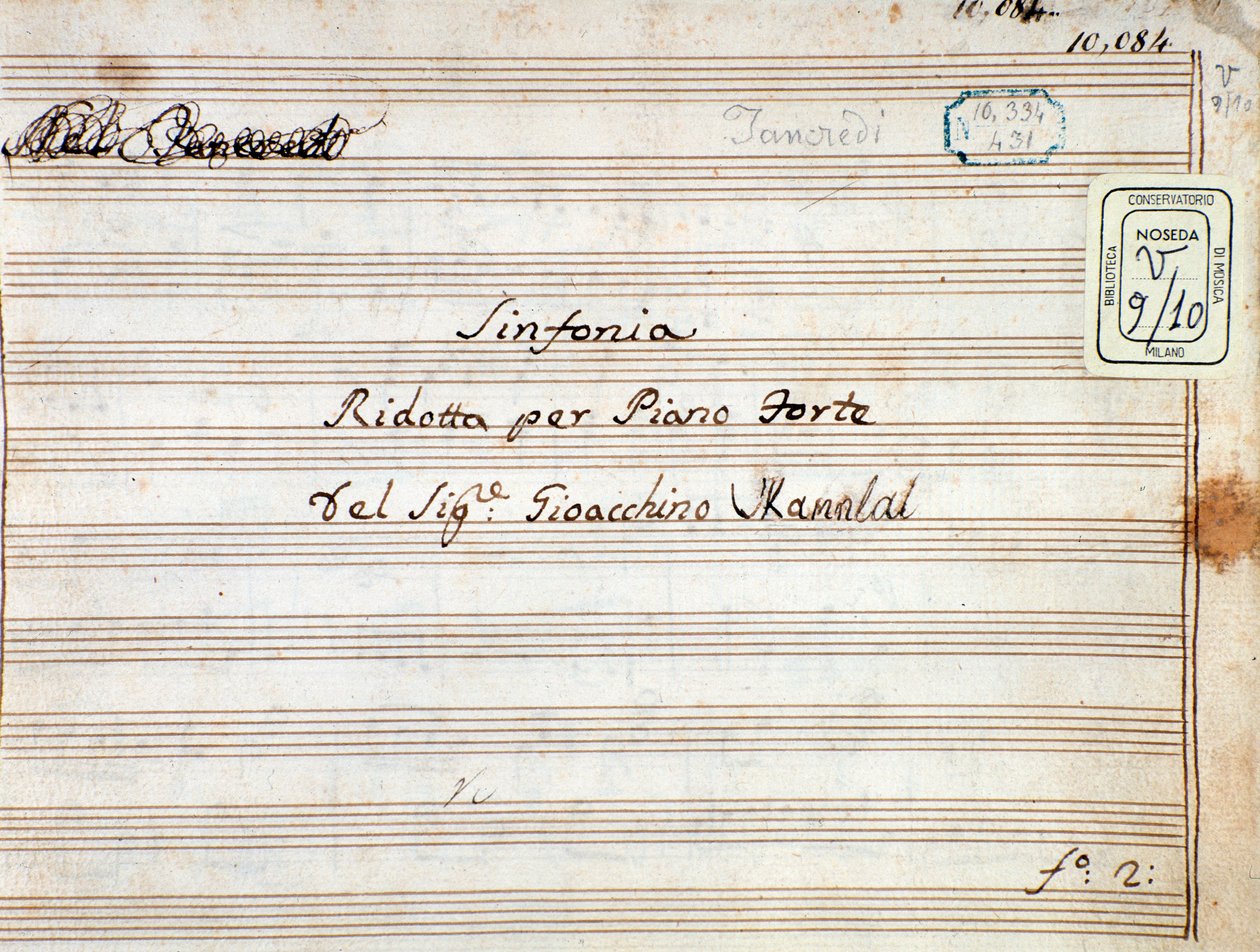 10,084.
10,084.
V
9/10
Tancredi
N 10,334
431
CONSERVATORIO
DI MUSICA
BIBLIOTECA
MILANO
NOSEDA
V
9/10
Sinfonia
Ridotta per Piano Forte
Del Sigre: Gioacchino
fo: 2: